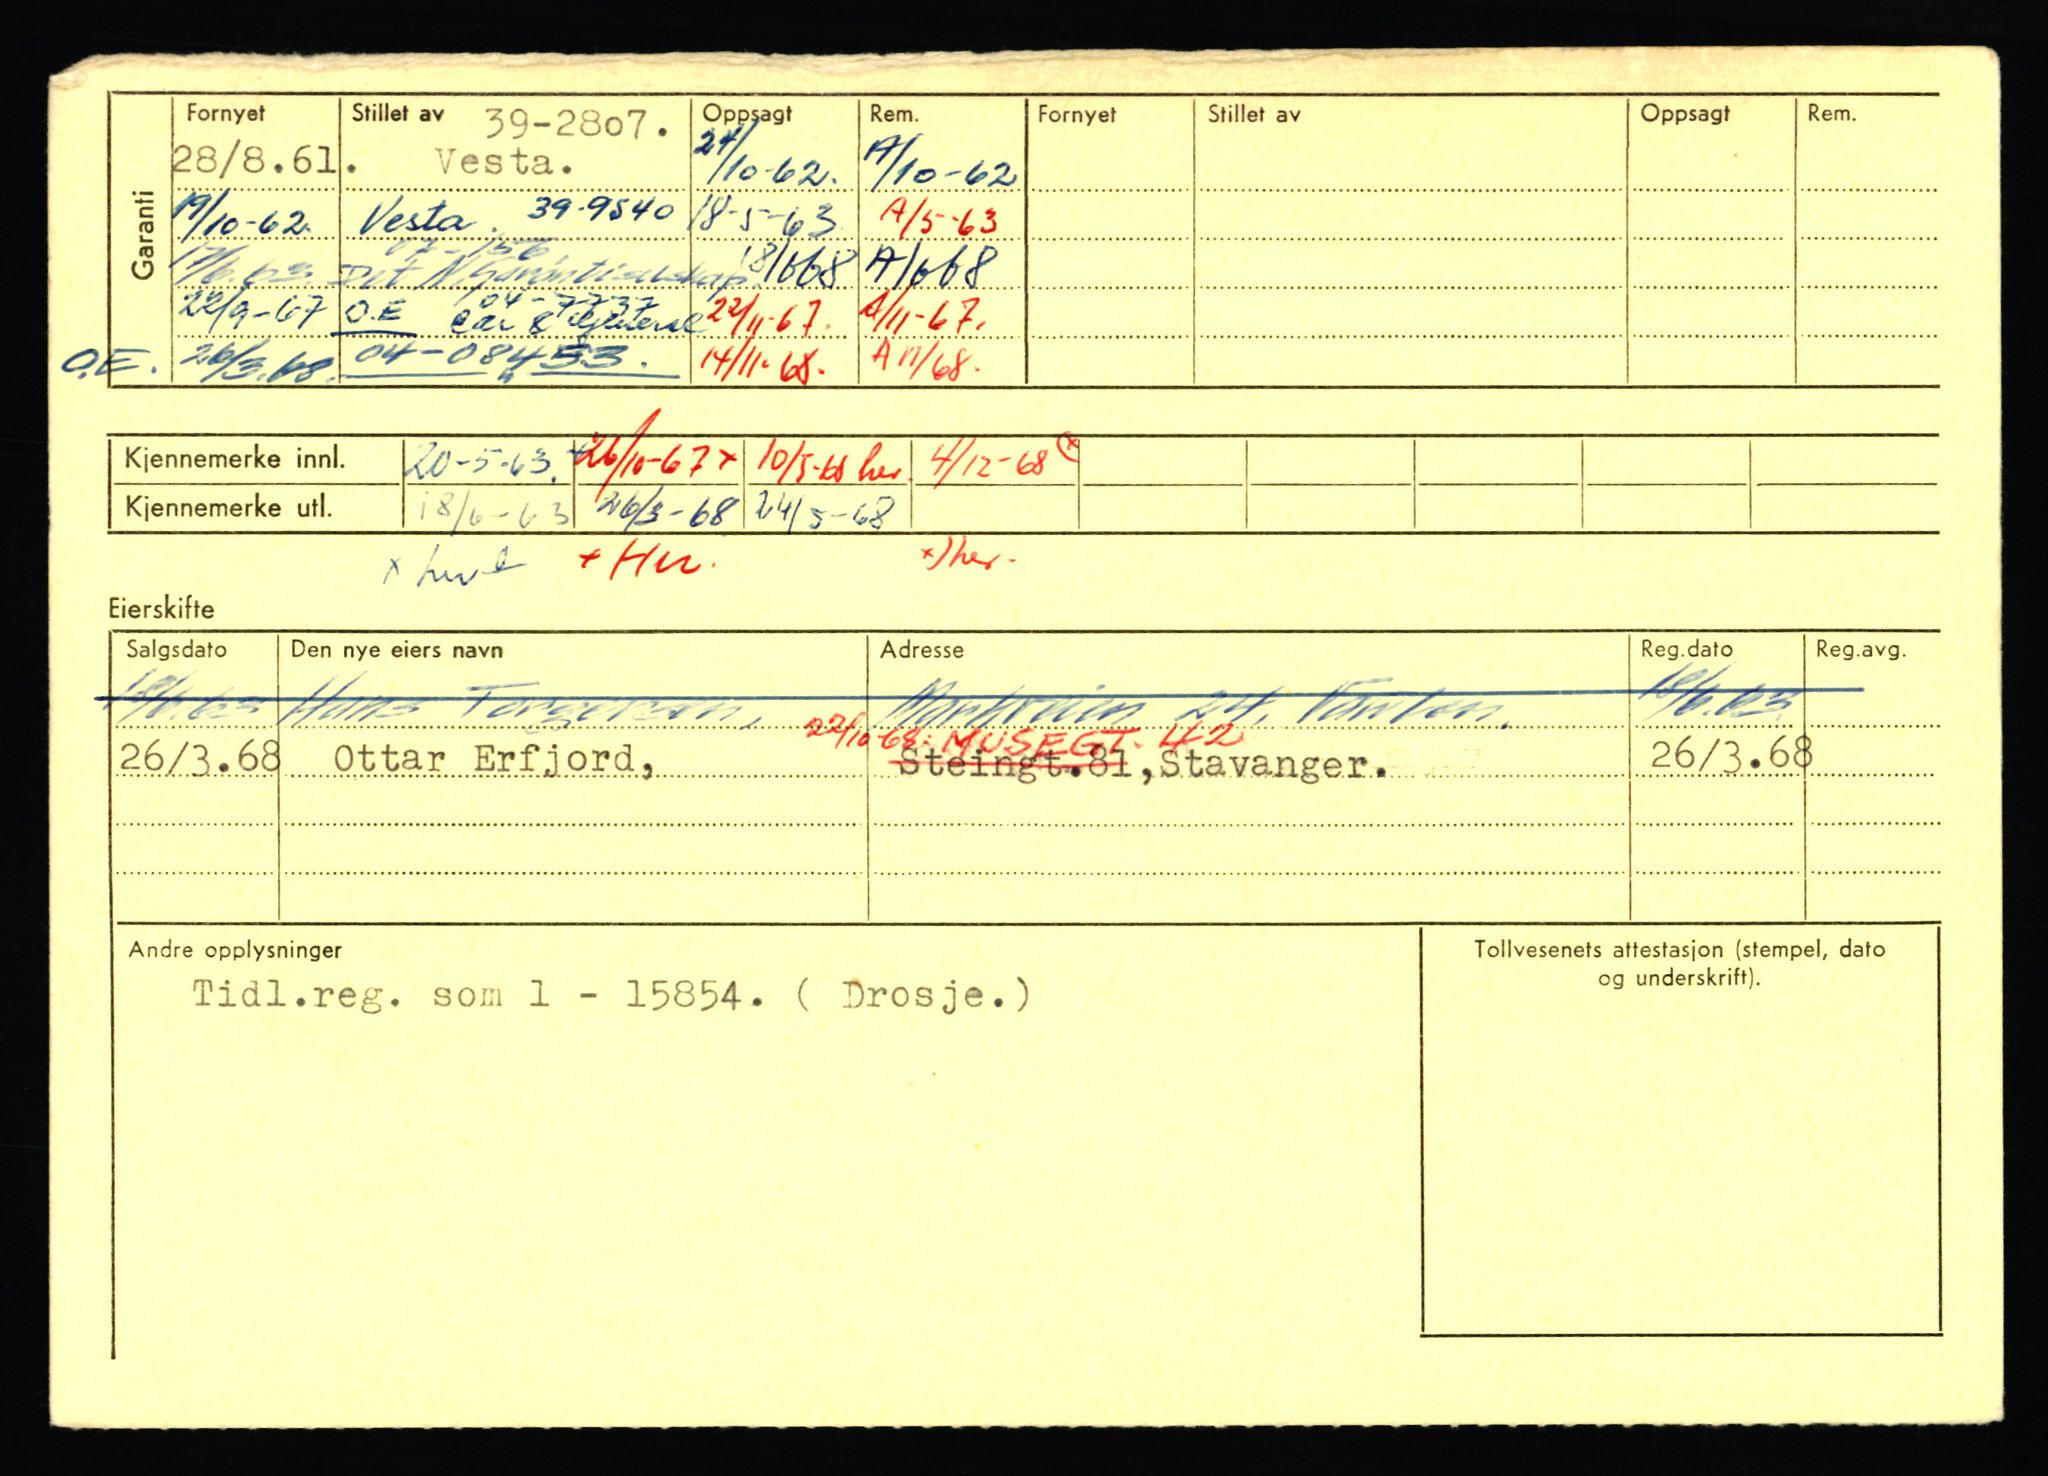 Garanti
Fornyet Stillet av 39-2807. Oppsagt Rem. Fornyet Stillet av Oppsagt Rem.
28/8.61. Vesta. 24/10-62. A/10-62
19/10-62. Vesta. 39-9540 18-5-63 A/5-63
07-156
17/6.63. Det N. Garantiselskap. 18/668 A/668
04-7737
22/9-67 O.E 22/11-67. A/11-67.
O.E. 26/3.68. 04-08453. 14/11-68. A 11/68.
Kjennemerke innl. 20-5-63. 26/10-67 x 10/5-68 her. 4/12-68 (x
Kjennemerke utl. 18/6-63 26/3-68 24/5-68
x + Her. x) her.
Eierskifte
Salgsdato Den nye eiers navn Adresse Reg.dato Reg.avg.
18/6.63 Hans Torgersen, 24, 18/6.63.
22/10-68: MUSEGT. 42
26/3.68 Ottar Erfjord, Steingt.81,Stavanger. 26/3.68
Andre opplysninger
Tidl.reg. som l - 15854. ( Drosje.)
Tollvesenets attestasjon (stempel, dato
og underskrift).